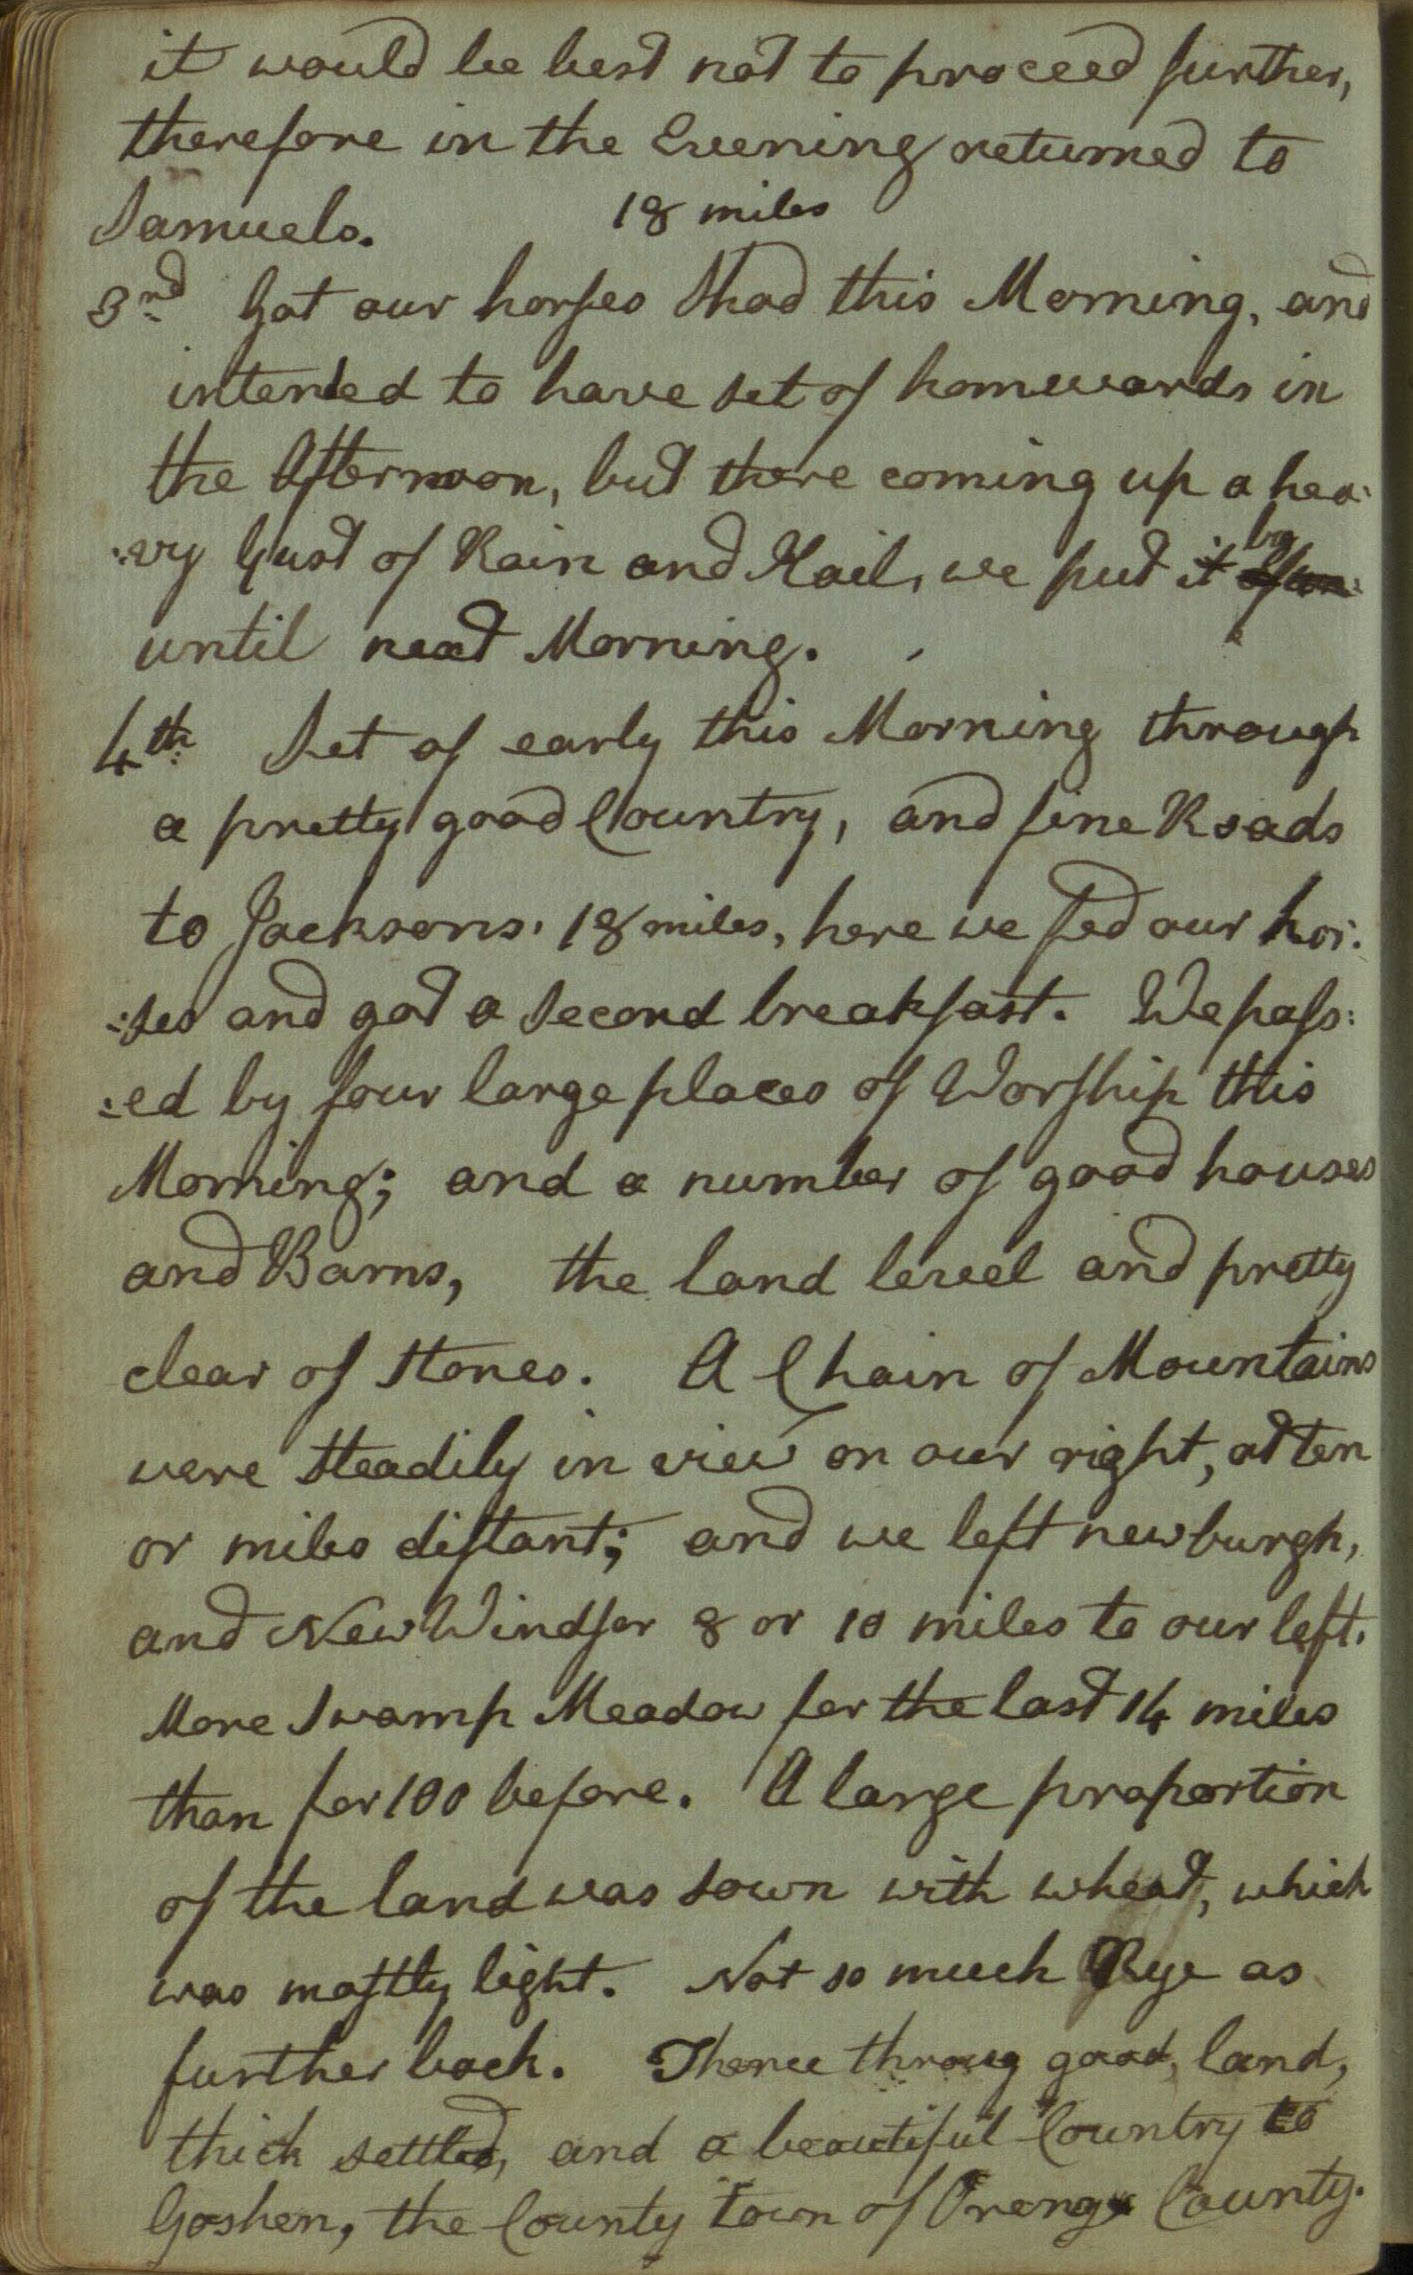 it would be best not to proceed further,
therefore in the Evening returned to
Samuels. 18 miles
3rd Got our horses Shod this Morning, and
intended to have set of homewards in
the Afternoon, but there coming up a hea:
:vy Gust of Rain and Hail, we put it by
until next Morning.
4th Set of early this Morning through
a pretty good Country, and fine Roads
to Jacksons. 18 miles, here we fed our hor:
:ses and got a Second breakfast. We pass:
:ed by four large places of Worship this
Morning; and a number of good houses
and Barns, the land level and pretty
clear of Stones. A Chain of Mountains
were Steadily in view on our right, at ten
or miles distant; and we left newburgh,
and New Windsor 8 or 10 miles to our left.
More Swamp Meadow for the last 14 miles
than for 100 before. A large proportion
of the land was sown with wheat, which
was mostly light. Not so much Rye as
further back. Thence throug good, land,
thick settled, and a beautiful Country to
Goshen, the County town of Orange County.